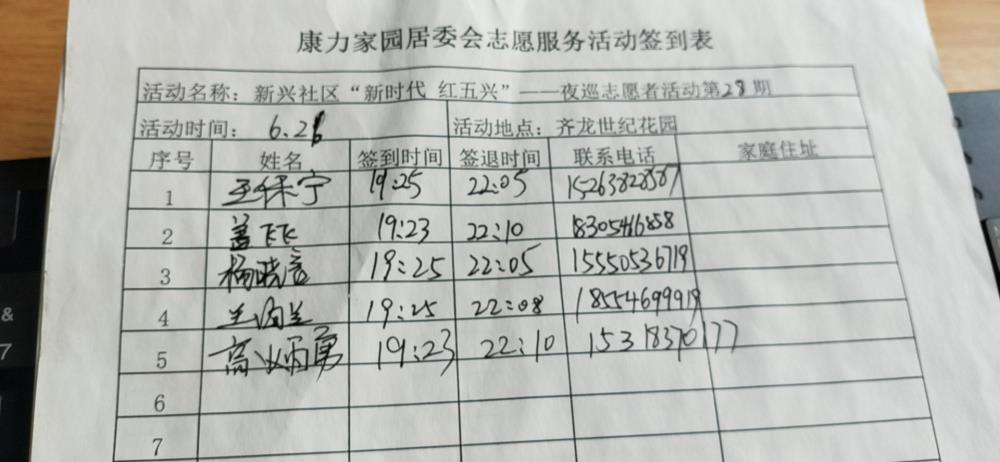 康力家园居委会志愿服务活动签到表
活动名称：新兴社区“新时代 红五兴”——夜巡志愿者活动第28期
活动时间：6.26 活动地点：齐龙世纪花园
序号 姓名 签到时间 签退时间 联系电话 家庭住址
1 王保宁 19:25 22:05 15263828587
2 盖飞飞 19:23 22:10 18305466858
3 杨晓 19:25 22:05 15550536719
4 19:25 22:08 18554699919
5 高 勇 19:23 22:10 15318370177
6
7